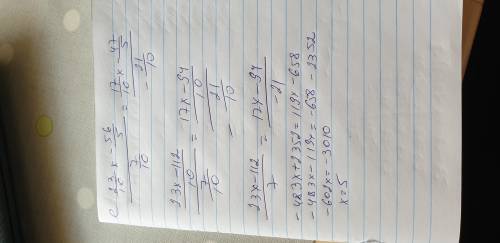 c) (23/10 x - 56/5) / (7/10) = (17/10 x - 47/5) / (-21/10)
((23x-112)/10) / (7/10) = ((17x-94)/10) / (-21/10)
(23x-112)/7 = (17x-94)/-21
-483x+2352=119x-658
-483x-119x=-658-2352
-602x=-3010
x=5